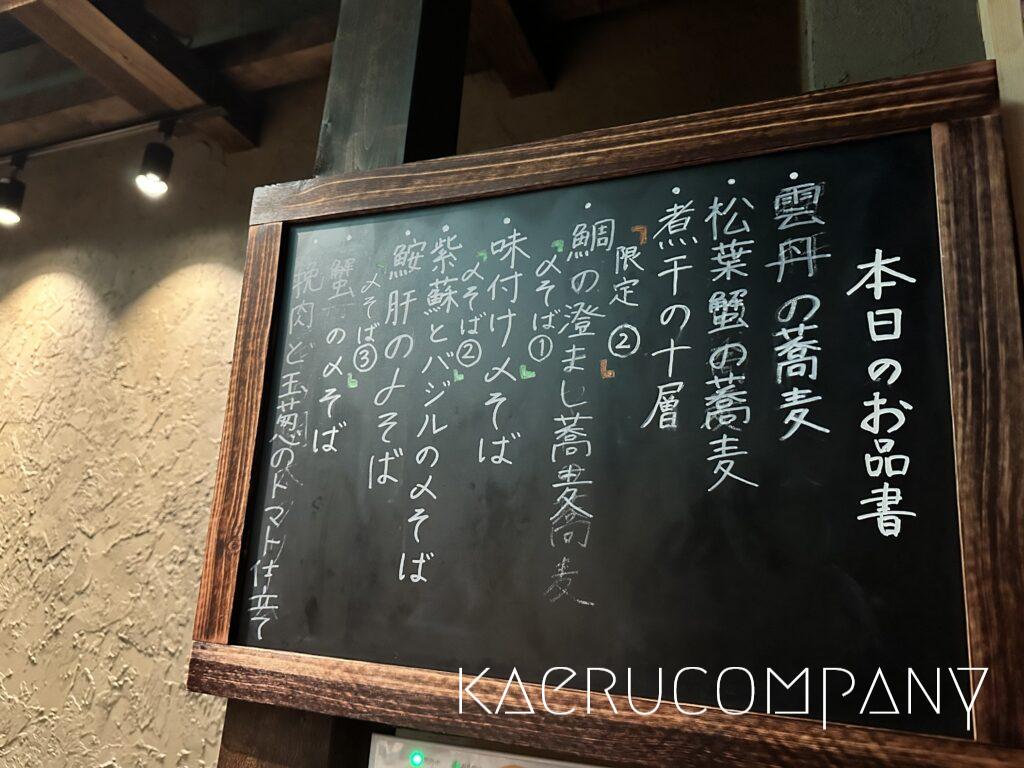 本日のお品書
雲丹の蕎麦
松葉蟹の蕎麦
煮干の十層
限定②
鯛の澄まし蕎麦
〆そば①
味付け〆そば
〆そば②
紫蘇とバジルの〆そば
鮟肝の〆そば
〆そば③
蟹の〆そば
挽肉と玉葱のトマト仕立て
KAERUCOMPANY